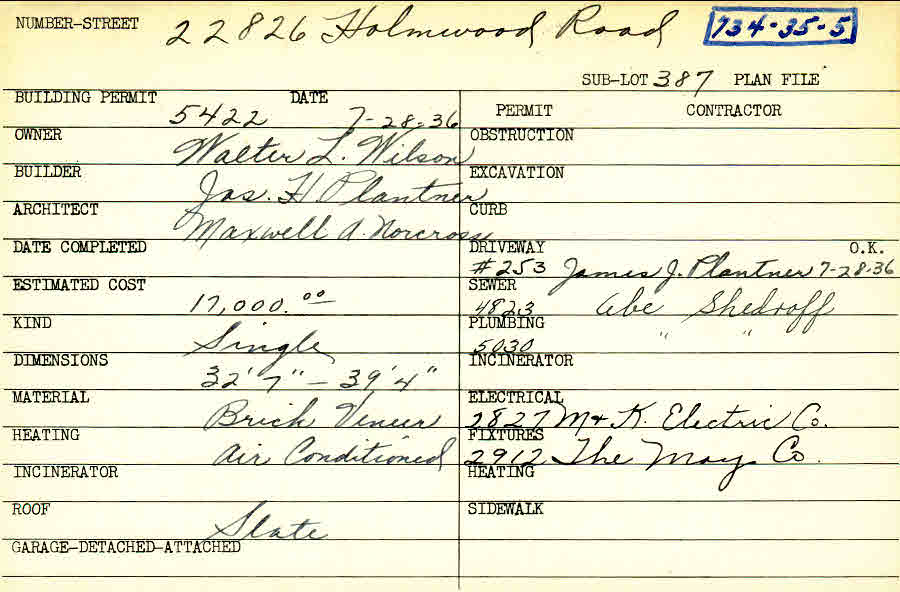 NUMBER-STREET 22826 Holmwood Road 734-35-5
SUB-LOT 387 PLAN FILE
BUILDING PERMIT DATE
5422 7-28-36
PERMIT CONTRACTOR
OWNER Walter L. Wilson
OBSTRUCTION
BUILDER Jas. H. Plantner
EXCAVATION
ARCHITECT Maxwell A. Norcross
CURB
DATE COMPLETED
DRIVEWAY O.K.
#253 James J. Plantner 7-28-36
ESTIMATED COST 17,000.00
SEWER
4823 Abe Shedroff
KIND Single
PLUMBING
5030 " "
DIMENSIONS 32'7" - 39'4"
INCINERATOR
MATERIAL Brick Veneer
ELECTRICAL
2827 M & K. Electric Co.
HEATING Air Conditioned
FIXTURES
2912 The May Co.
INCINERATOR
HEATING
ROOF Slate
SIDEWALK
GARAGE-DETACHED-ATTACHED